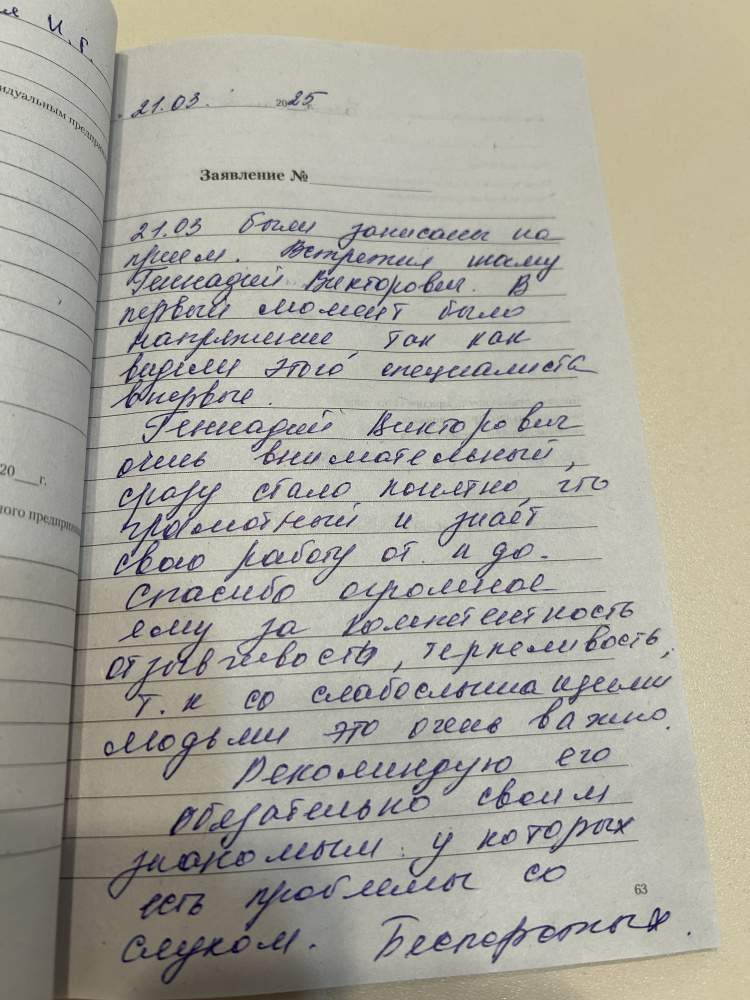 я И. Г.
идуальным предприн
20___г.
ного предприни
21.03. 2025 г.
Заявление №
21.03 были записаны на
прием. Встретил маму
Геннадий Викторович. В
первый момент было
напряжение, так как
видели этого специалиста
впервые.
Геннадий Викторович
очень внимательный,
сразу стало понятно, что
грамотный и знает
свою работу от и до.
Спасибо огромное
ему за компетентность
отзывчивость, терпеливость,
т.к со слабослышащими
людьми это очень важно.
Рекоминдую его
обязательно своим
знакомым у которых
есть проблемы со
слухом.
63